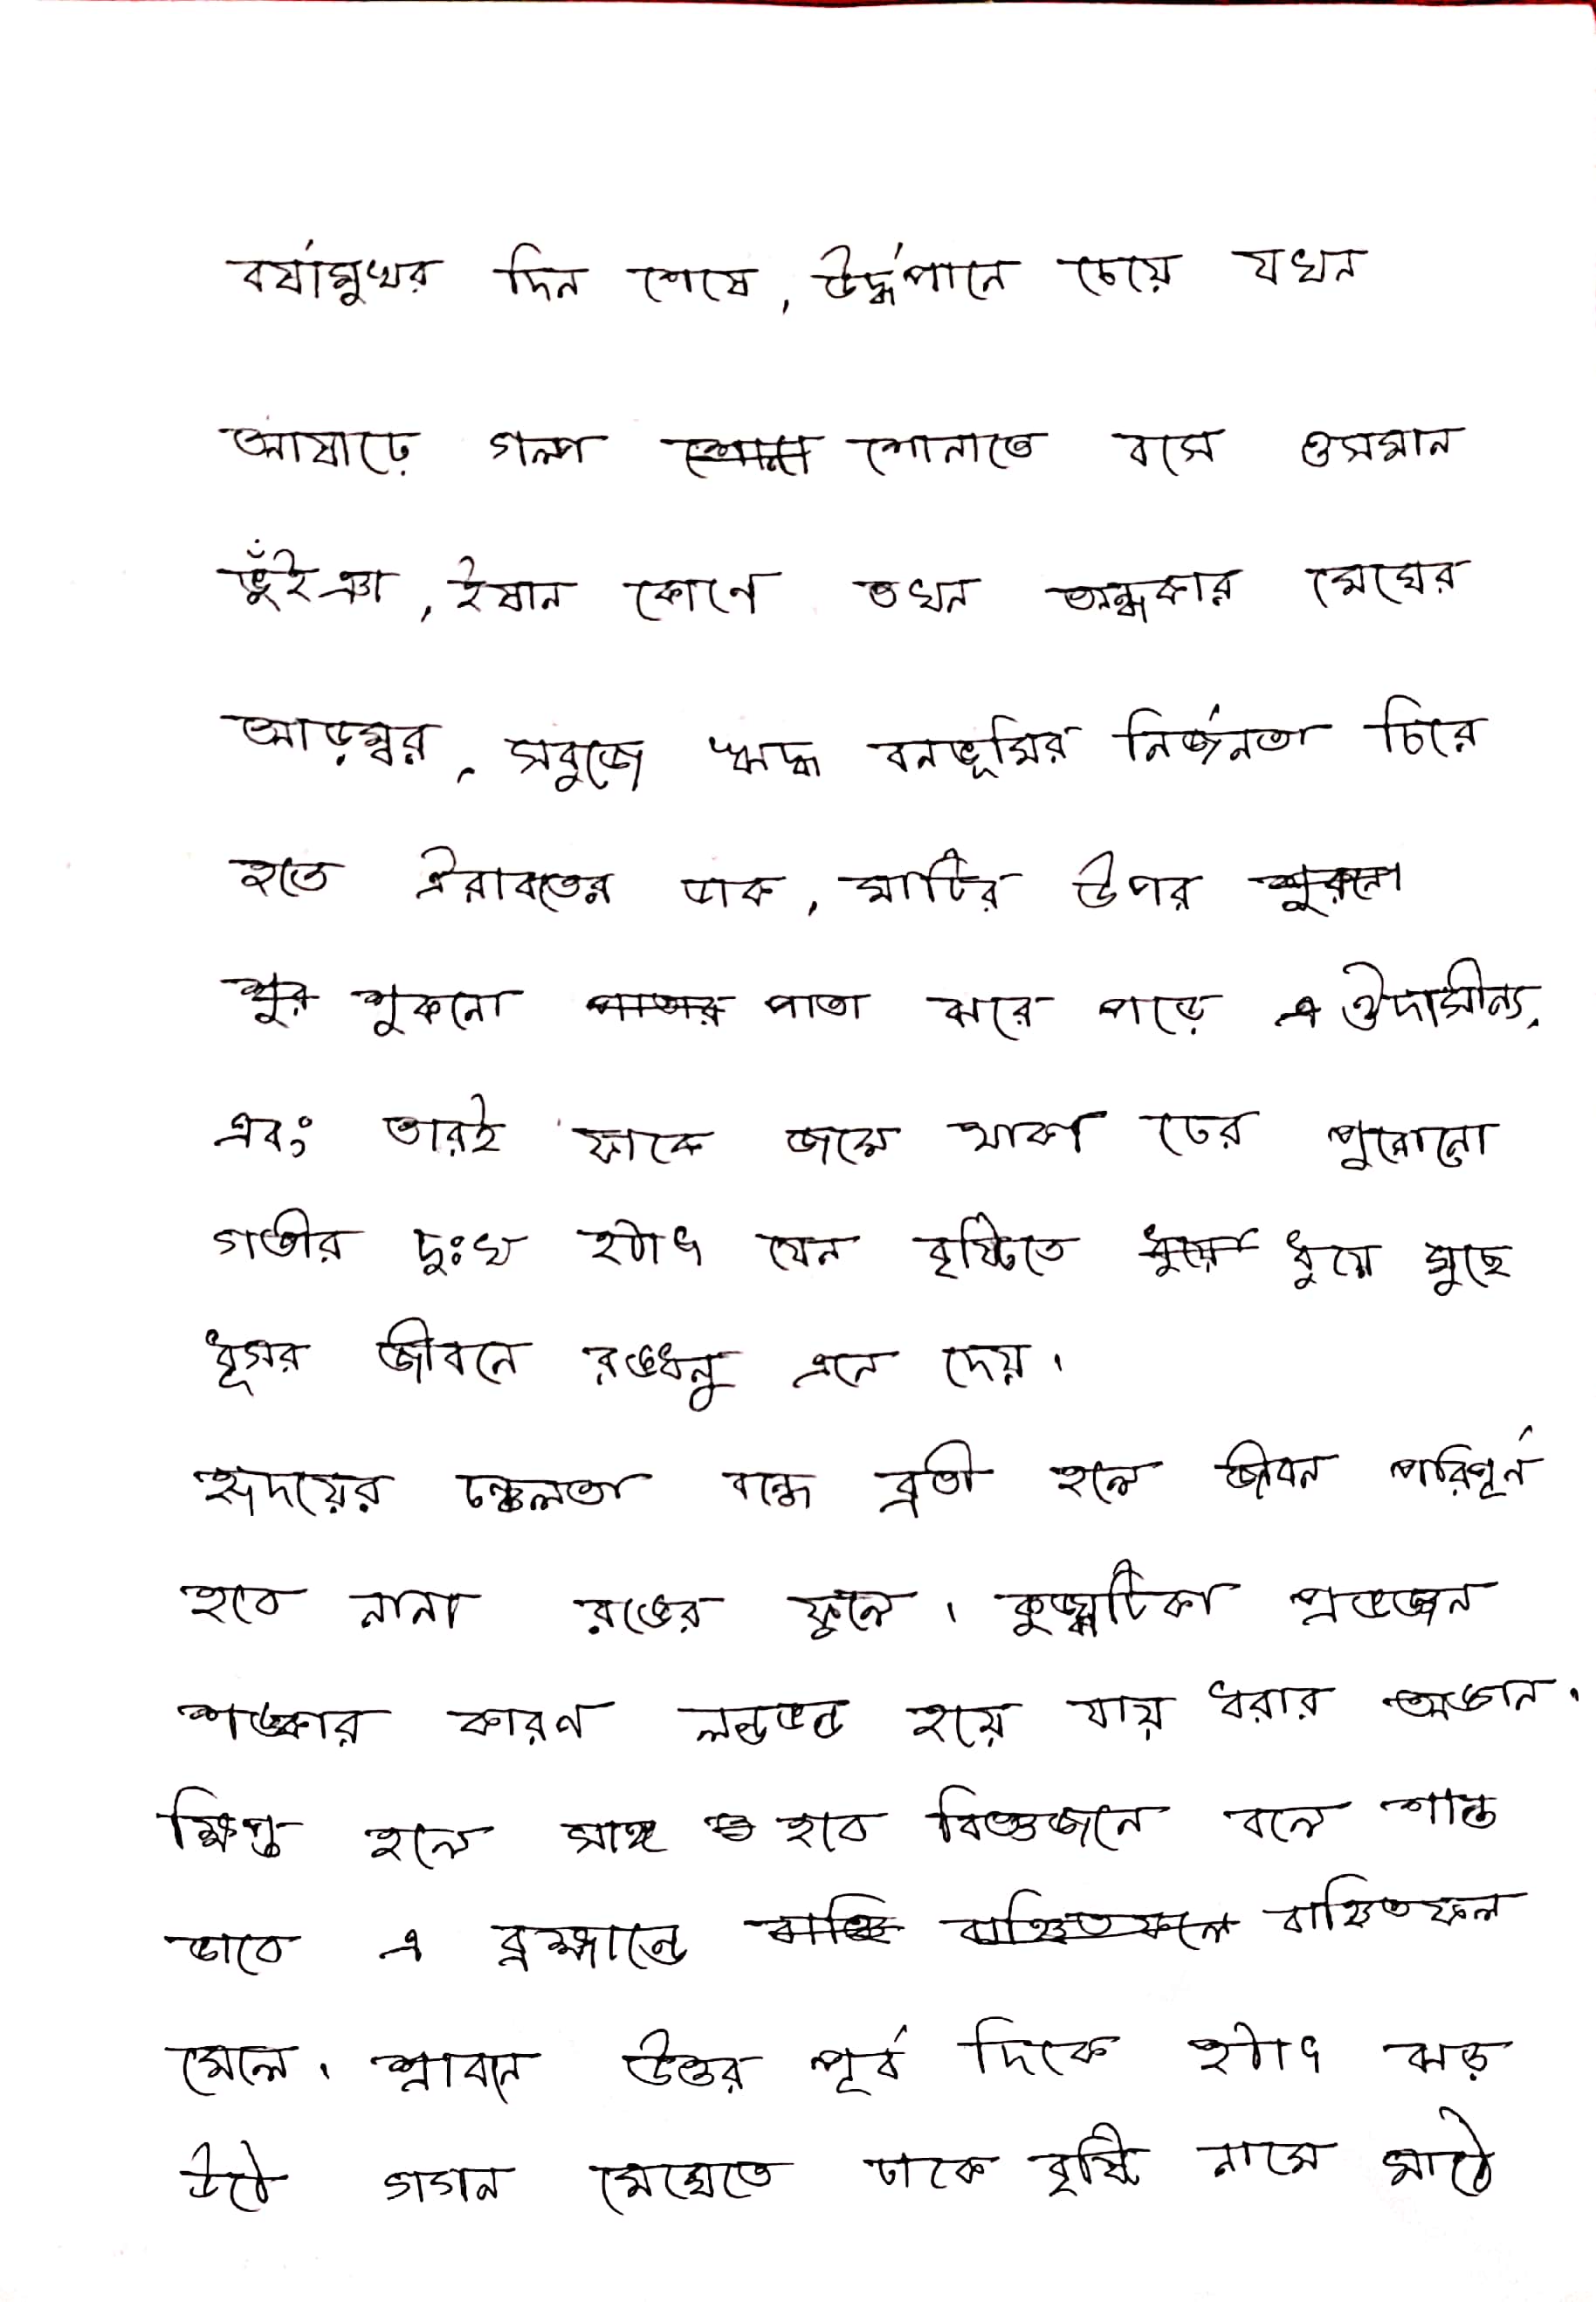 বর্ষামুখর দিন শেষে, উর্দ্ধপানে চেয়ে যখন
আষাঢ়ে গল্প শোনাতে বসে ওসমান
ভুঁইঞা, ইষান কোনে তখন অন্ধকার মেঘের
আড়ম্বর, সবুজে ঋদ্ধ বনভূমির নির্জনতা চিরে
হতে ঐরাবতের ডাক, মাটির উপর
শুকনো পাতা ঝরে পড়ে ঔদাসীন্য,
এবং তারই ফাকে জমে থাকা ঢের পুরোনো
গভীর দুঃখ হঠাৎ যেন বৃষ্টিতে ধুয়ে মুছে
ধূসর জীবনে রঙধনু এনে দেয়।
হৃদয়ের চঞ্চলতা বন্ধে ব্রতী হলে জীবন পরিপূর্ন
হবে নানা রঙের ফুলে। কুজ্ঝটিকা প্রভঞ্জন
শঙ্কার কারণ লন্ডভন্ড হয়ে যায় ধরার অঙ্গন।
ক্ষিপ্ত হলে সাঙ্গ হবে বিজ্ঞজনে বলে শান্ত
ভাবে এ ব্রহ্মান্ডে বাঞ্ছিতফল
মেলে। শ্রাবনে উত্তর পূর্ব দিকে হঠাৎ ঝড়
উঠে গগন মেঘেতে ঢাকে বৃষ্টি নামে মাঠে